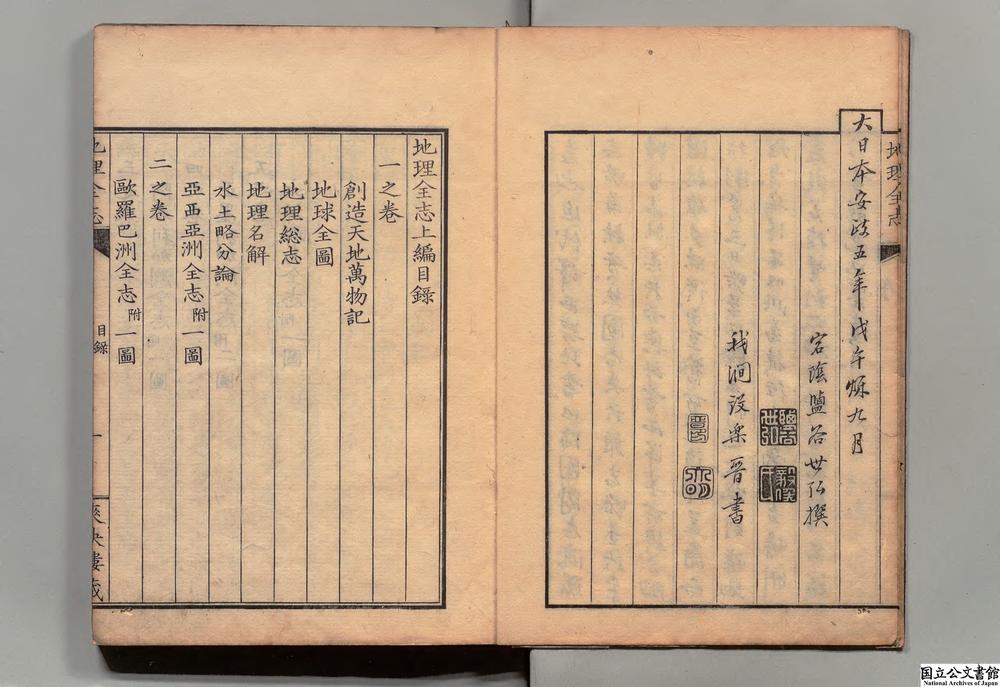 大日本安政五年戊午穐九月
宕陰鹽谷世弘撰
我淵設楽晉書
地理全志
地理全志上編目錄
一之卷
創造天地萬物記
地球全圖
地理総志
地理名解
水土略分論
亞西亞洲全志附一圖
二之卷
歐羅巴洲全志附一圖
地理全志
目錄
一
爽快樓蔵
国立公文書館
National Archives of Japan